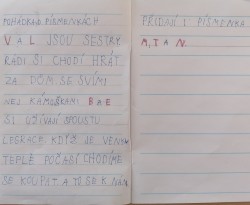 POHÁDKA O PÍSMENKÁCH
V A L JSOU SESTRY
RÁDI SI CHODÍ HRÁT
ZA DŮM SE SVÍMI
NEJ KÁMOŠKAMI B A E
SI UŽÍVAJÍ SPOUSTU
LEGRACE KDYŽ JE VENKU
TEPLÉ POČASÍ CHODÍME
SE KOUPAT A TO SE K NÁM
PŘIDAJÍ I PÍSMENKA
M, T A N.